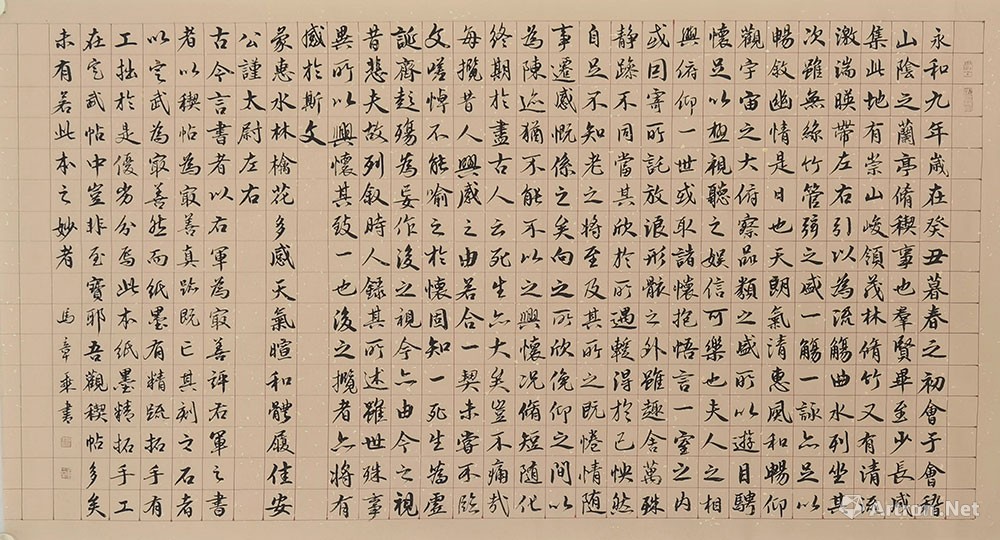 永和九年歲在癸丑暮春之初會于會稽
山陰之蘭亭脩稧事也羣賢畢至少長咸
集此地有崇山峻領茂林脩竹又有清流
激湍暎帶左右引以為流觴曲水列坐其
次雖無絲竹管弦之盛一觴一詠亦足以
暢敘幽情是日也天朗氣清惠風和暢仰
觀宇宙之大俯察品類之盛所以遊目騁
懷足以極視聽之娛信可樂也夫人之相
與俯仰一世或取諸懷抱悟言一室之内
或因寄所託放浪形骸之外雖趣舍萬殊
靜躁不同當其欣於所遇輊得於己怏然
自足不知老之將至及其所之既惓情隨
事遷感慨係之矣向之所欣俛仰之間以
為陳迹猶不能不以之興懷況脩短隨化
終期於盡古人云死生亦大矣豈不痛哉
每攬昔人興感之由若合一契未嘗不臨
文嗟悼不能喻之於懷固知一死生為虛
誕齊彭殤為妄作後之視今亦由今之視
昔悲夫故列敘時人錄其所述雖世殊事
異所以興懷其致一也後之攬者亦將有
感於斯文
蒙惠水林檎花多感天氣暄和體履佳安
公謹太尉左右
古今言書者以右軍為最善評右軍之書
者以稧帖為最善真跡既亡其刻之石者
以定武為最善然而紙墨有精疏拓手有
工拙於是優劣分焉此本紙墨精拓手工
在定武帖中豈非至寶耶吾觀稧帖多矣
未有若此本之妙者 馬章乘書
Artron.Net